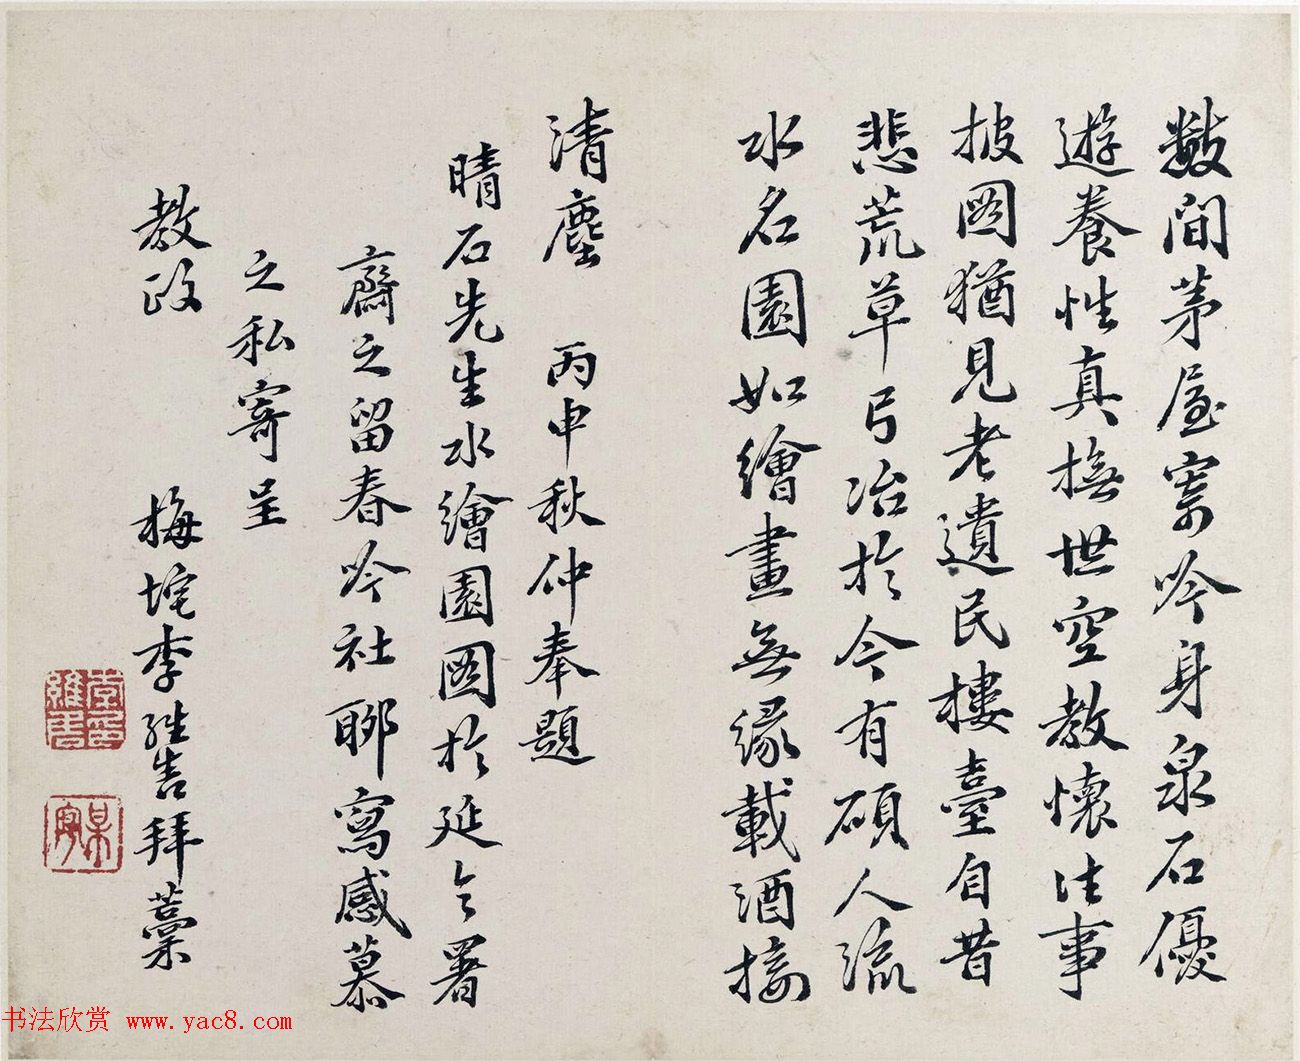 數間茅屋寄吟身泉石優
遊養性真撫世空教懷往事
披圖猶見老遺民樓臺自昔
悲荒草弓冶於今有碩人流
水名園如繪畫無緣載酒接
清塵　丙申秋仲奉題
晴石先生水繪園圖於延令署
齋之留春吟社聊寫感慕
之私寄呈
教政　梅垞李維告拜藁
书法欣赏 www.yac8.com